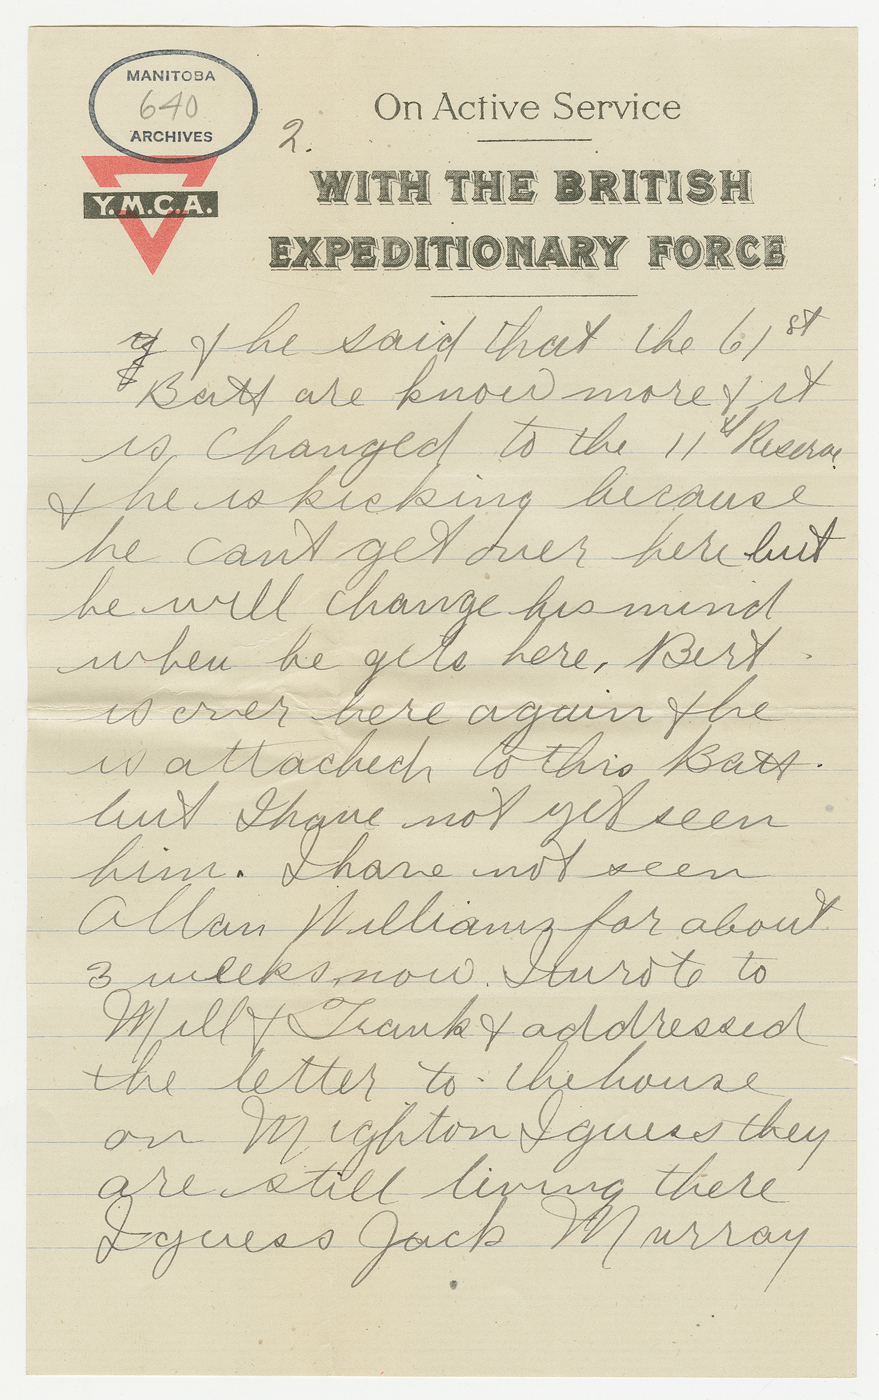 MANITOBA
640
ARCHIVES
Y.M.C.A.
2.
On Active Service
WITH THE BRITISH
EXPEDITIONARY FORCE
& he said that the 61st
Batt are know more & it
is changed to the 11th Reserve
& he is kicking because
he can't get over here but
he will change his mind
when he gets here, Bert
is over here again & he
is attached to this Batt.
but I have not yet seen
him. I have not seen
Allan Williams for about
3 weeks now. I wrote to
Mill & Frank & addressed
the letter to the house
on Mighton I guess they
are still living there
I guess Jack Murray